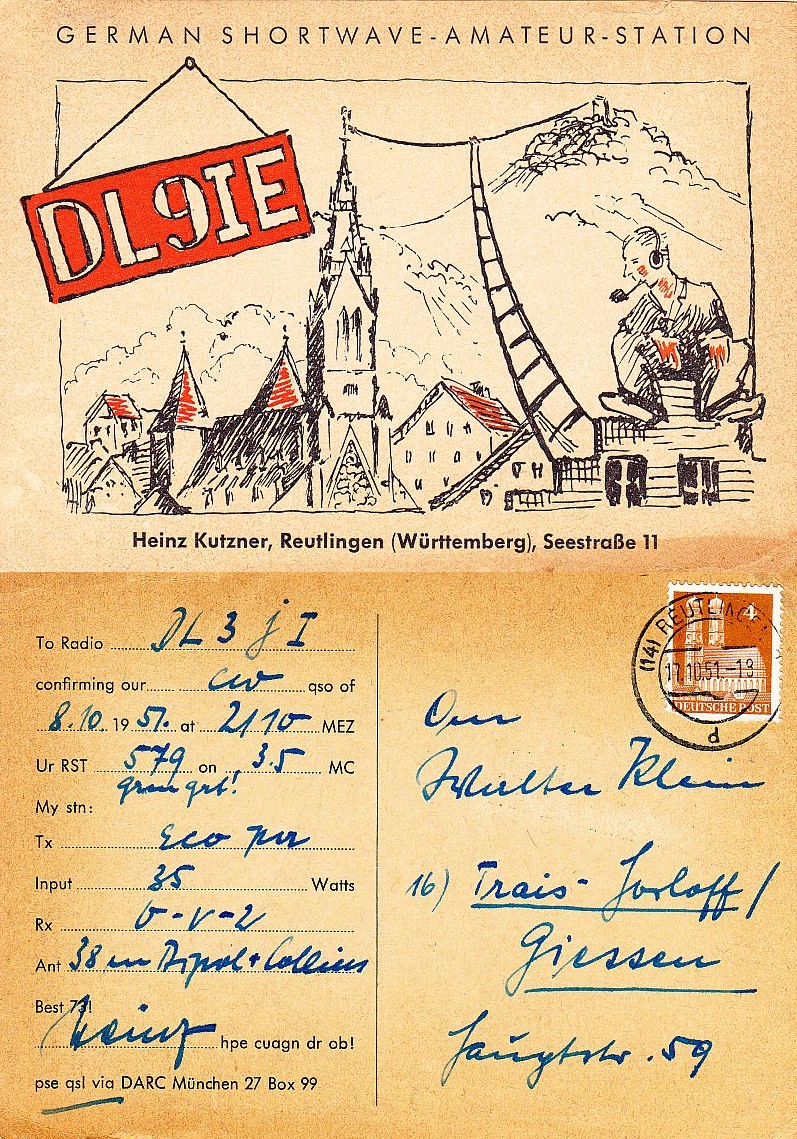 GERMAN SHORTWAVE-AMATEUR-STATION
DL9IE
Heinz Kutzner, Reutlingen (Württemberg), Seestraße 11
To Radio DL3JI
confirming our cw qso of
8.10. 1951. at 2110 MEZ
Ur RST 579 on 3.5 MC
My stn:
Tx Eco
Input 35 Watts
Rx 0-V-2
Ant 38 m Dipol + Collins
Best 73!
Heinz hpe cuagn dr ob!
pse qsl via DARC München 27 Box 99
4
(14) REUTLINGEN
17.10.51-18
DEUTSCHE POST
d
Walter Klein
16) Trais-Horloff/
Giessen
Hauptstr. 59